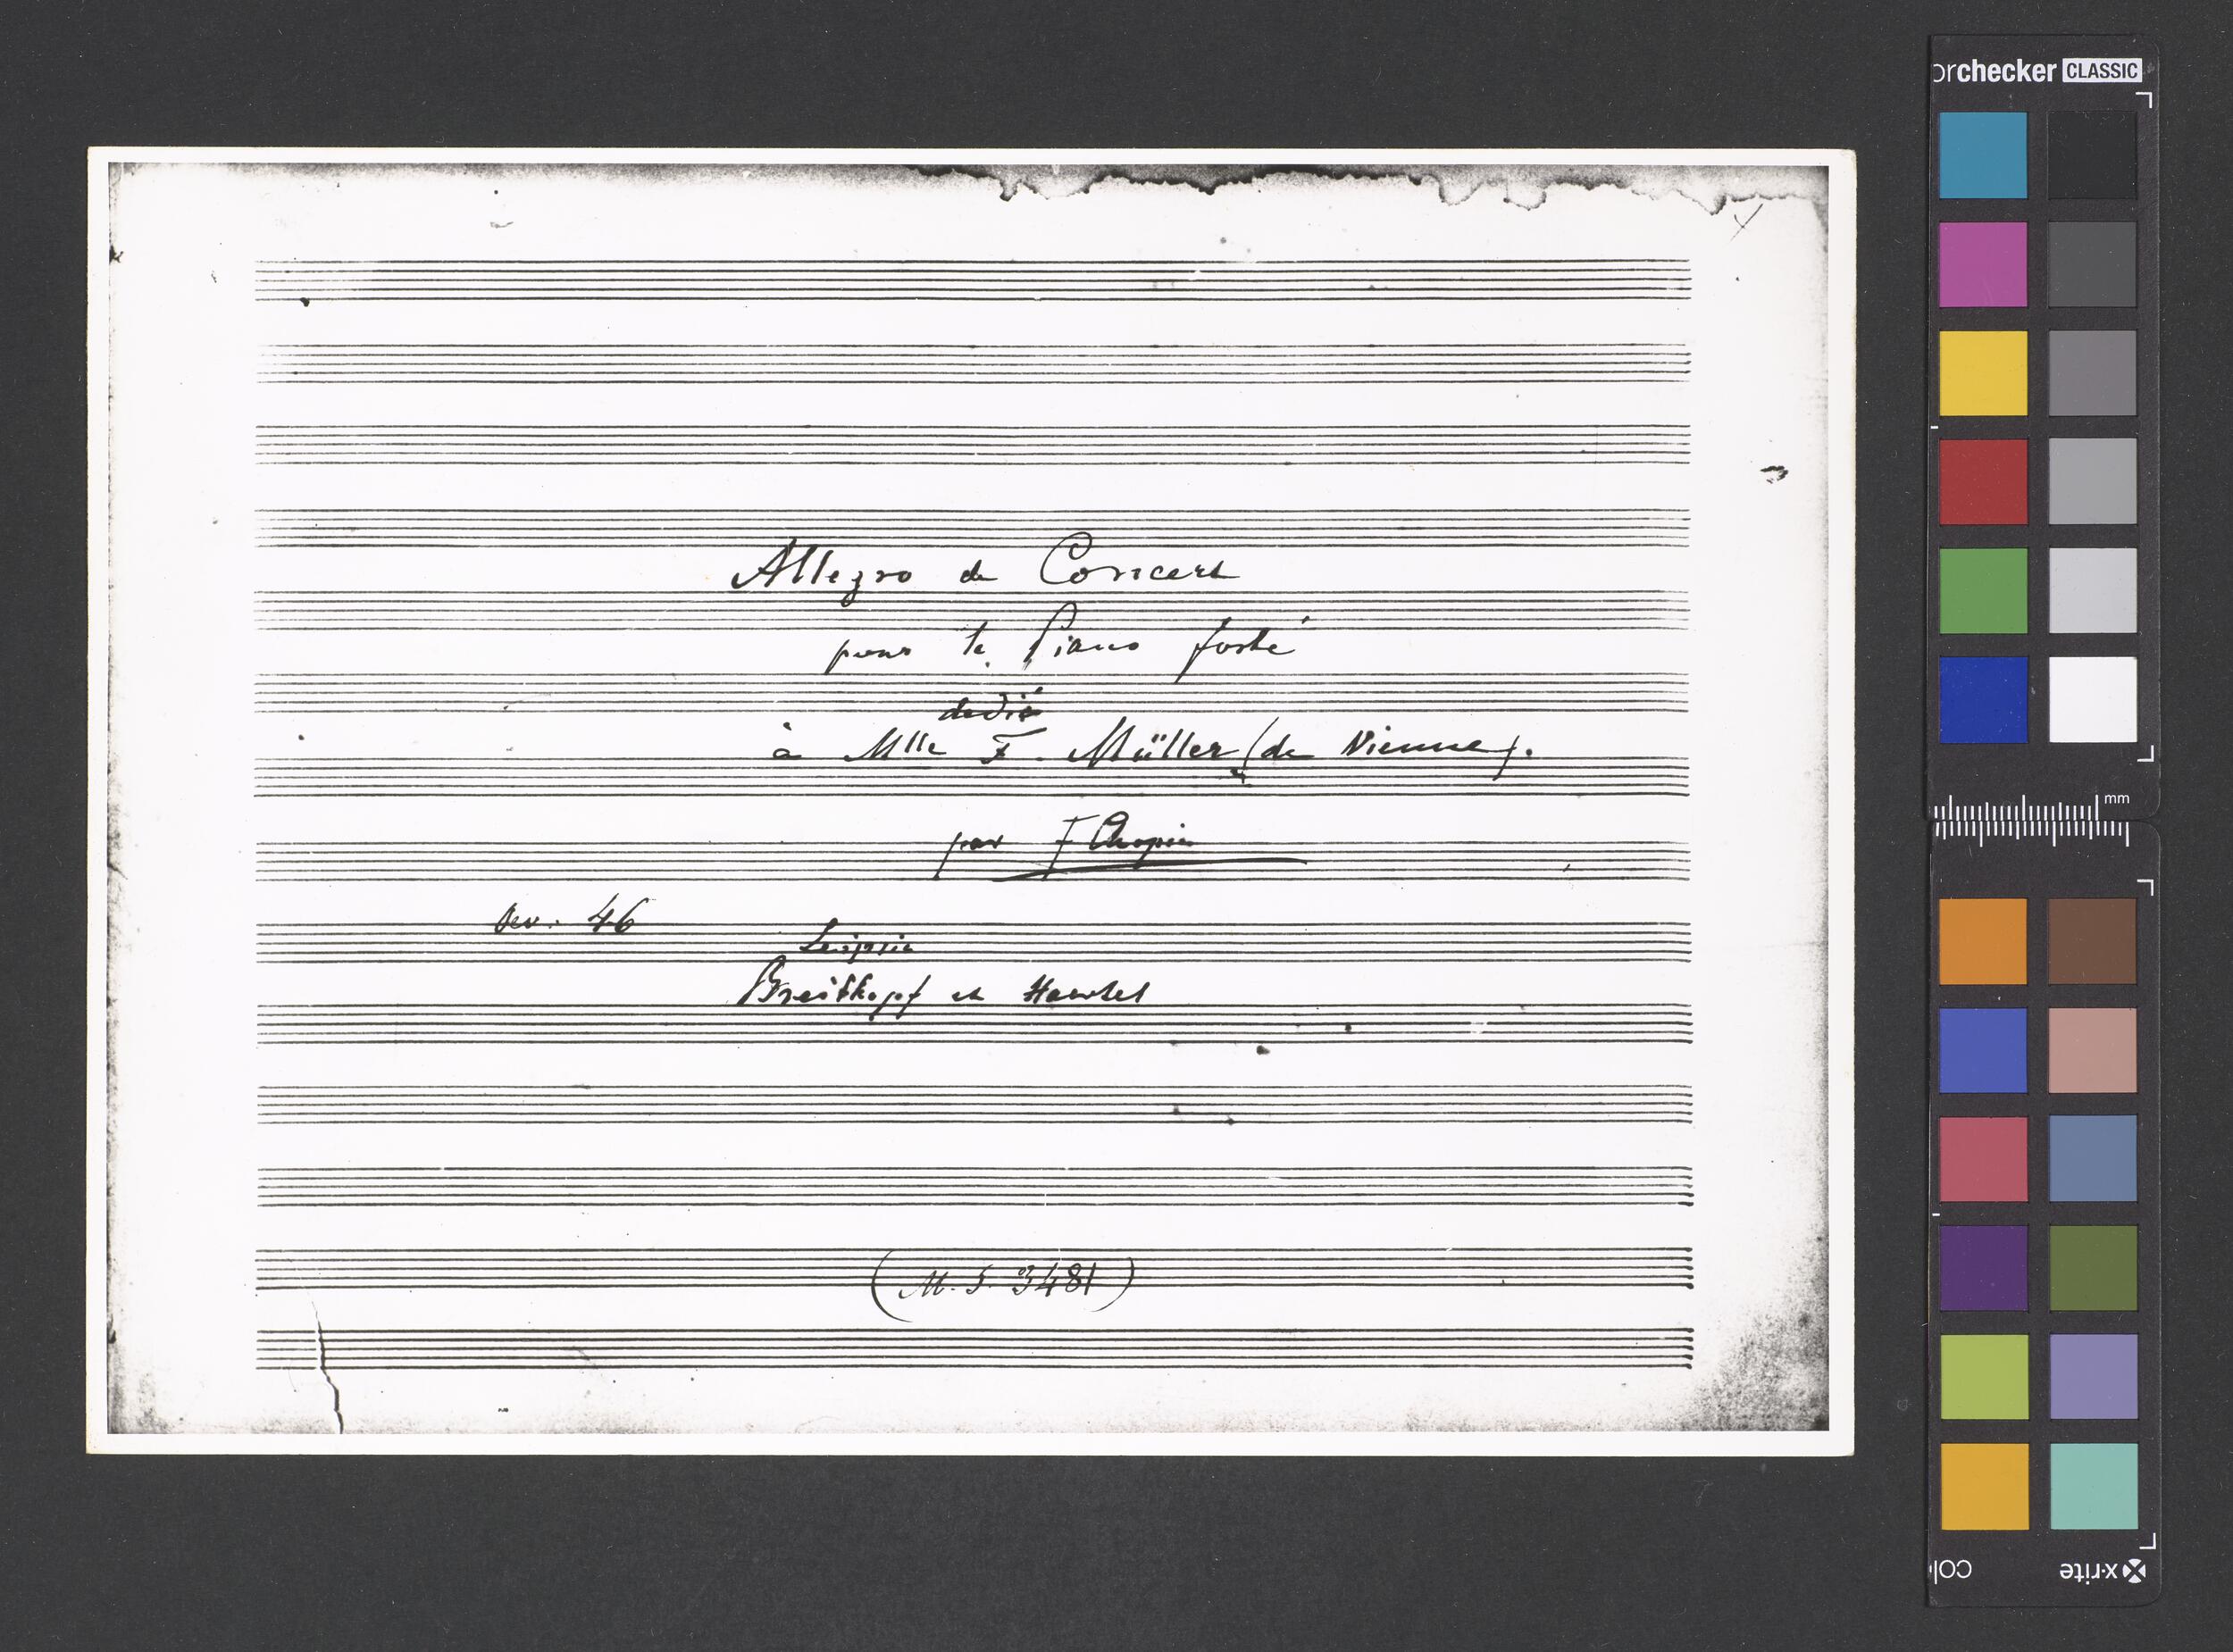 orchecker CLASSIC
Allegro de Concert
pour le Piano forté
dedié
à Mlle F. Müller (de Vienne).
par F Chopin
Oev. 46
Leipsic
Breitkopf et Haertel
(M. S. 3481)
mm
col
x·rite